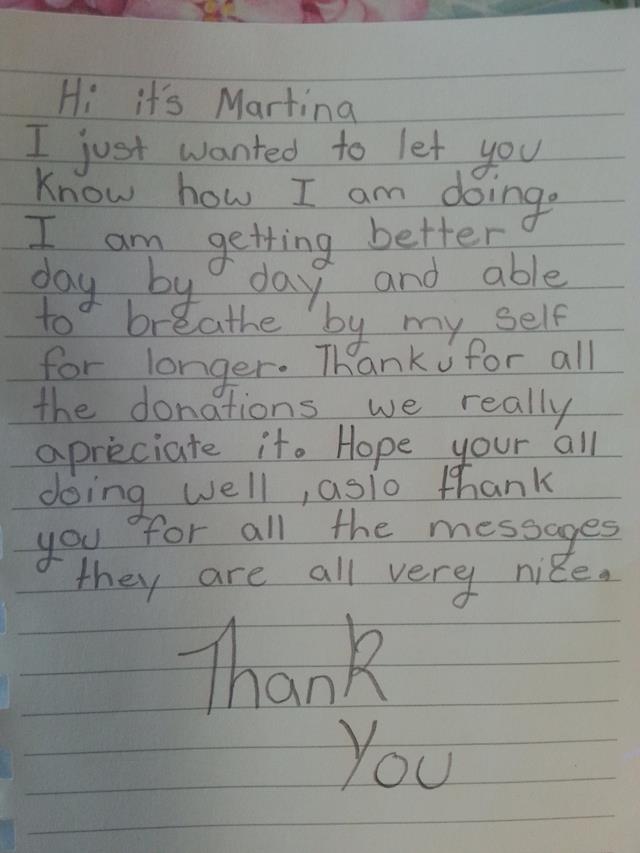 Hi it's Martina
I just wanted to let you
Know how I am doing.
I am getting better
day by day and able
to breathe by my self
for longer. Thank u for all
the donations we really
apreciate it. Hope your all
doing well , aslo thank
you for all the messages
they are all very nice.
Thank
You